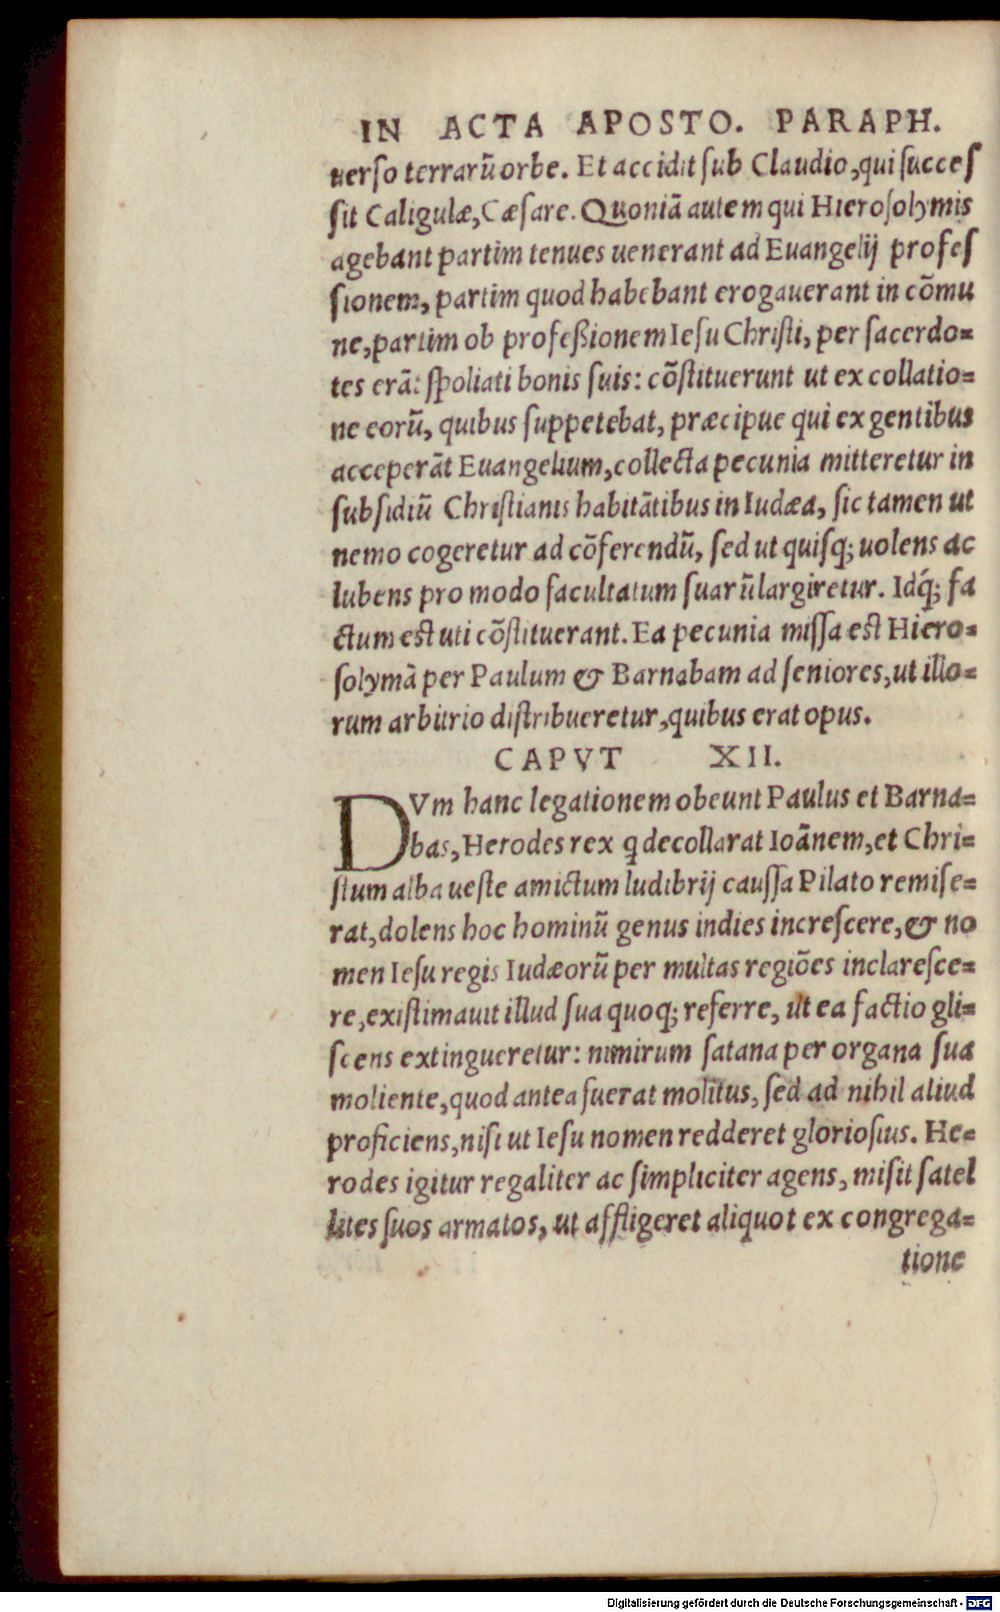 IN ACTA APOSTO. PARAPH.
uerso terrarũ orbe. Et accidit sub Claudio, qui succes
sit Caligulæ, Cæsare. Quoniã autem qui Hierosolymis
agebant partim tenues uenerant ad Euangelij profes
sionem, partim quod habebant erogauerant in cõmu
ne, partim ob profeßionem Iesu Christi, per sacerdo=
tes erãt spoliati bonis suis: cõstituerunt ut ex collatio=
ne eorũ, quibus suppetebat, præcipue qui ex gentibus
acceperãt Euangelium, collecta pecunia mitteretur in
subsidiũ Christianis habitãtibus in Iudæa, sic tamen ut
nemo cogeretur ad cõferendũ, sed ut quisq; uolens ac
lubens pro modo facultatum suarũ largiretur. Idq́; fa
ctum est uti cõstituerant. Ea pecunia missa est Hiero=
solymã per Paulum & Barnabam ad seniores, ut illo=
rum arbitrio distribueretur, quibus erat opus.
CAPVT XII.
DVm hanc legationem obeunt Paulus et Barna=
bas, Herodes rex q decollarat Ioãnem, et Chri=
stum alba ueste amictum ludibrij caussa Pilato remise=
rat, dolens hoc hominũ genus indies increscere, & no
men Iesu regis Iudæorũ per multas regiões inclaresce=
re, existimauit illud sua quoq; referre, ut ea factio gli=
scens extingueretur: nimirum satana per organa sua
moliente, quod antea fuerat molitus, sed ad nihil aliud
proficiens, nisi ut Iesu nomen redderet gloriosius. He=
rodes igitur regaliter ac simpliciter agens, misit satel
lites suos armatos, ut affligeret aliquot ex congrega=
tione
Digitalisierung gefördert durch die Deutsche Forschungsgemeinschaft - DFG